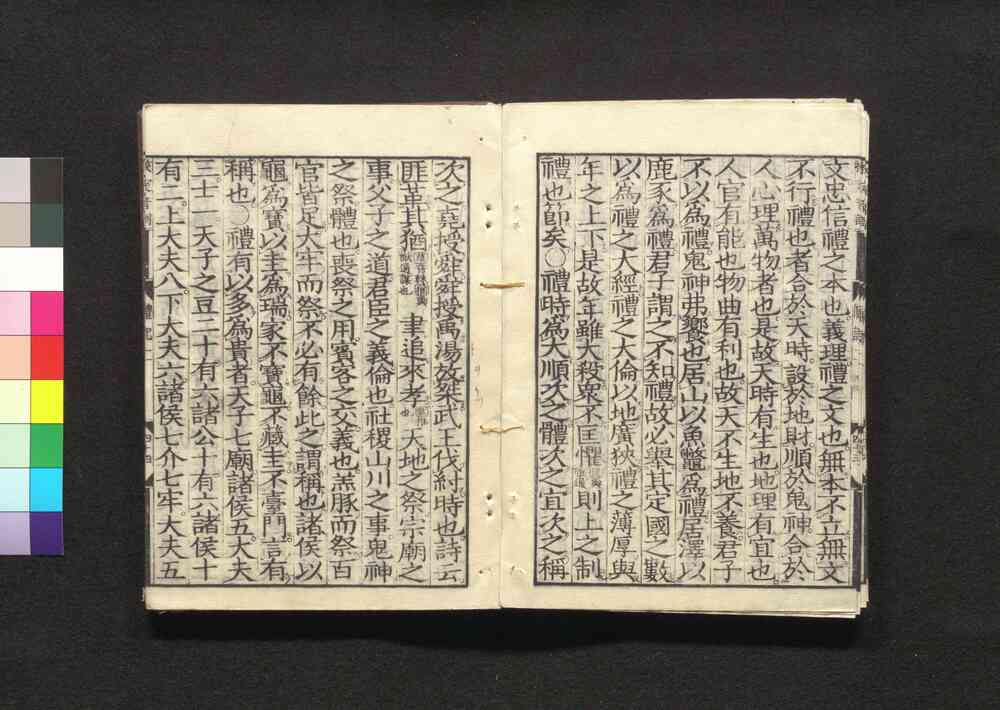 文忠信禮之本也義理禮之文也無本不立無文
不行禮也者合於天時設於地財順於鬼神合於
人心理萬物者也是故天時有生也地理有宜也
人官有能也物曲有利也故天不生地不養君子
不以為禮鬼神弗饗也居山以魚鼈為禮居澤以
鹿豕為禮君子謂之不知禮故必舉其定國之數
以為禮之大經禮之大倫以地廣狹禮之薄厚與
年之上下是故年雖大殺衆不匡懼則上之制
禮也節矣〇禮時為大順次之體次之宜次之稱
次之堯授舜舜授禹湯放桀武王伐紂時也詩云
匪革其猶聿追來孝天地之祭宗廟之
事父子之道君臣之義倫也社稷山川之事鬼神
之祭體也喪祭之用賓客之交義也羔豚而祭百
官皆足大牢而祭不必有餘此之謂稱也諸侯以
龜為寶以圭為瑞家不寶龜不藏圭不臺門言有
稱也〇禮有以多為貴者天子七廟諸侯五大夫
三士一天子之豆二十有六諸公十有六諸侯十
有二上大夫八下大夫六諸侯七介七牢大夫五